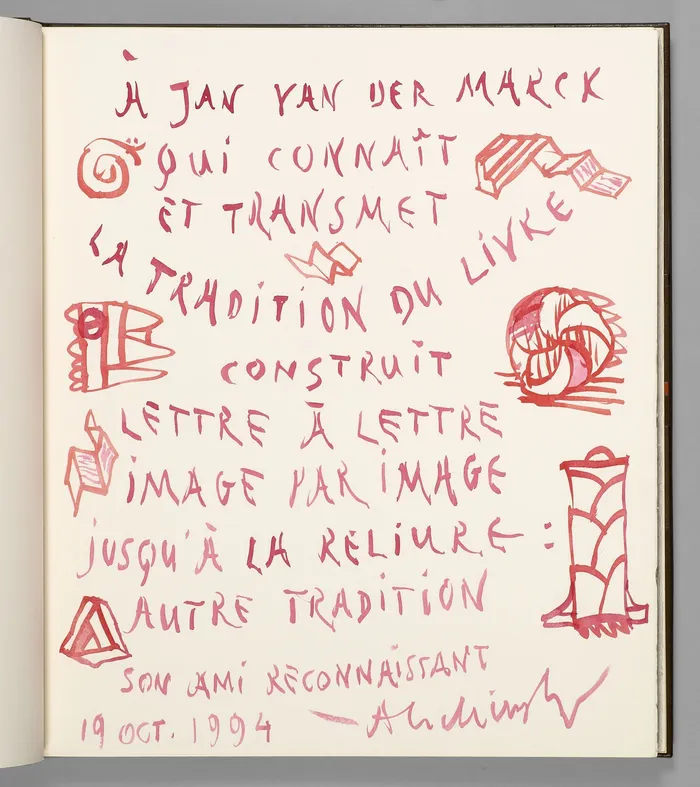 À JAN VAN DER MARCK
QUI CONNAÎT
ET TRANSMET
LA TRADITION DU LIVRE
CONSTRUIT
LETTRE À LETTRE
IMAGE PAR IMAGE
JUSQU'À LA RELIURE :
AUTRE TRADITION
SON AMI RECONNAISSANT
19 OCT. 1994 — Alechinsky